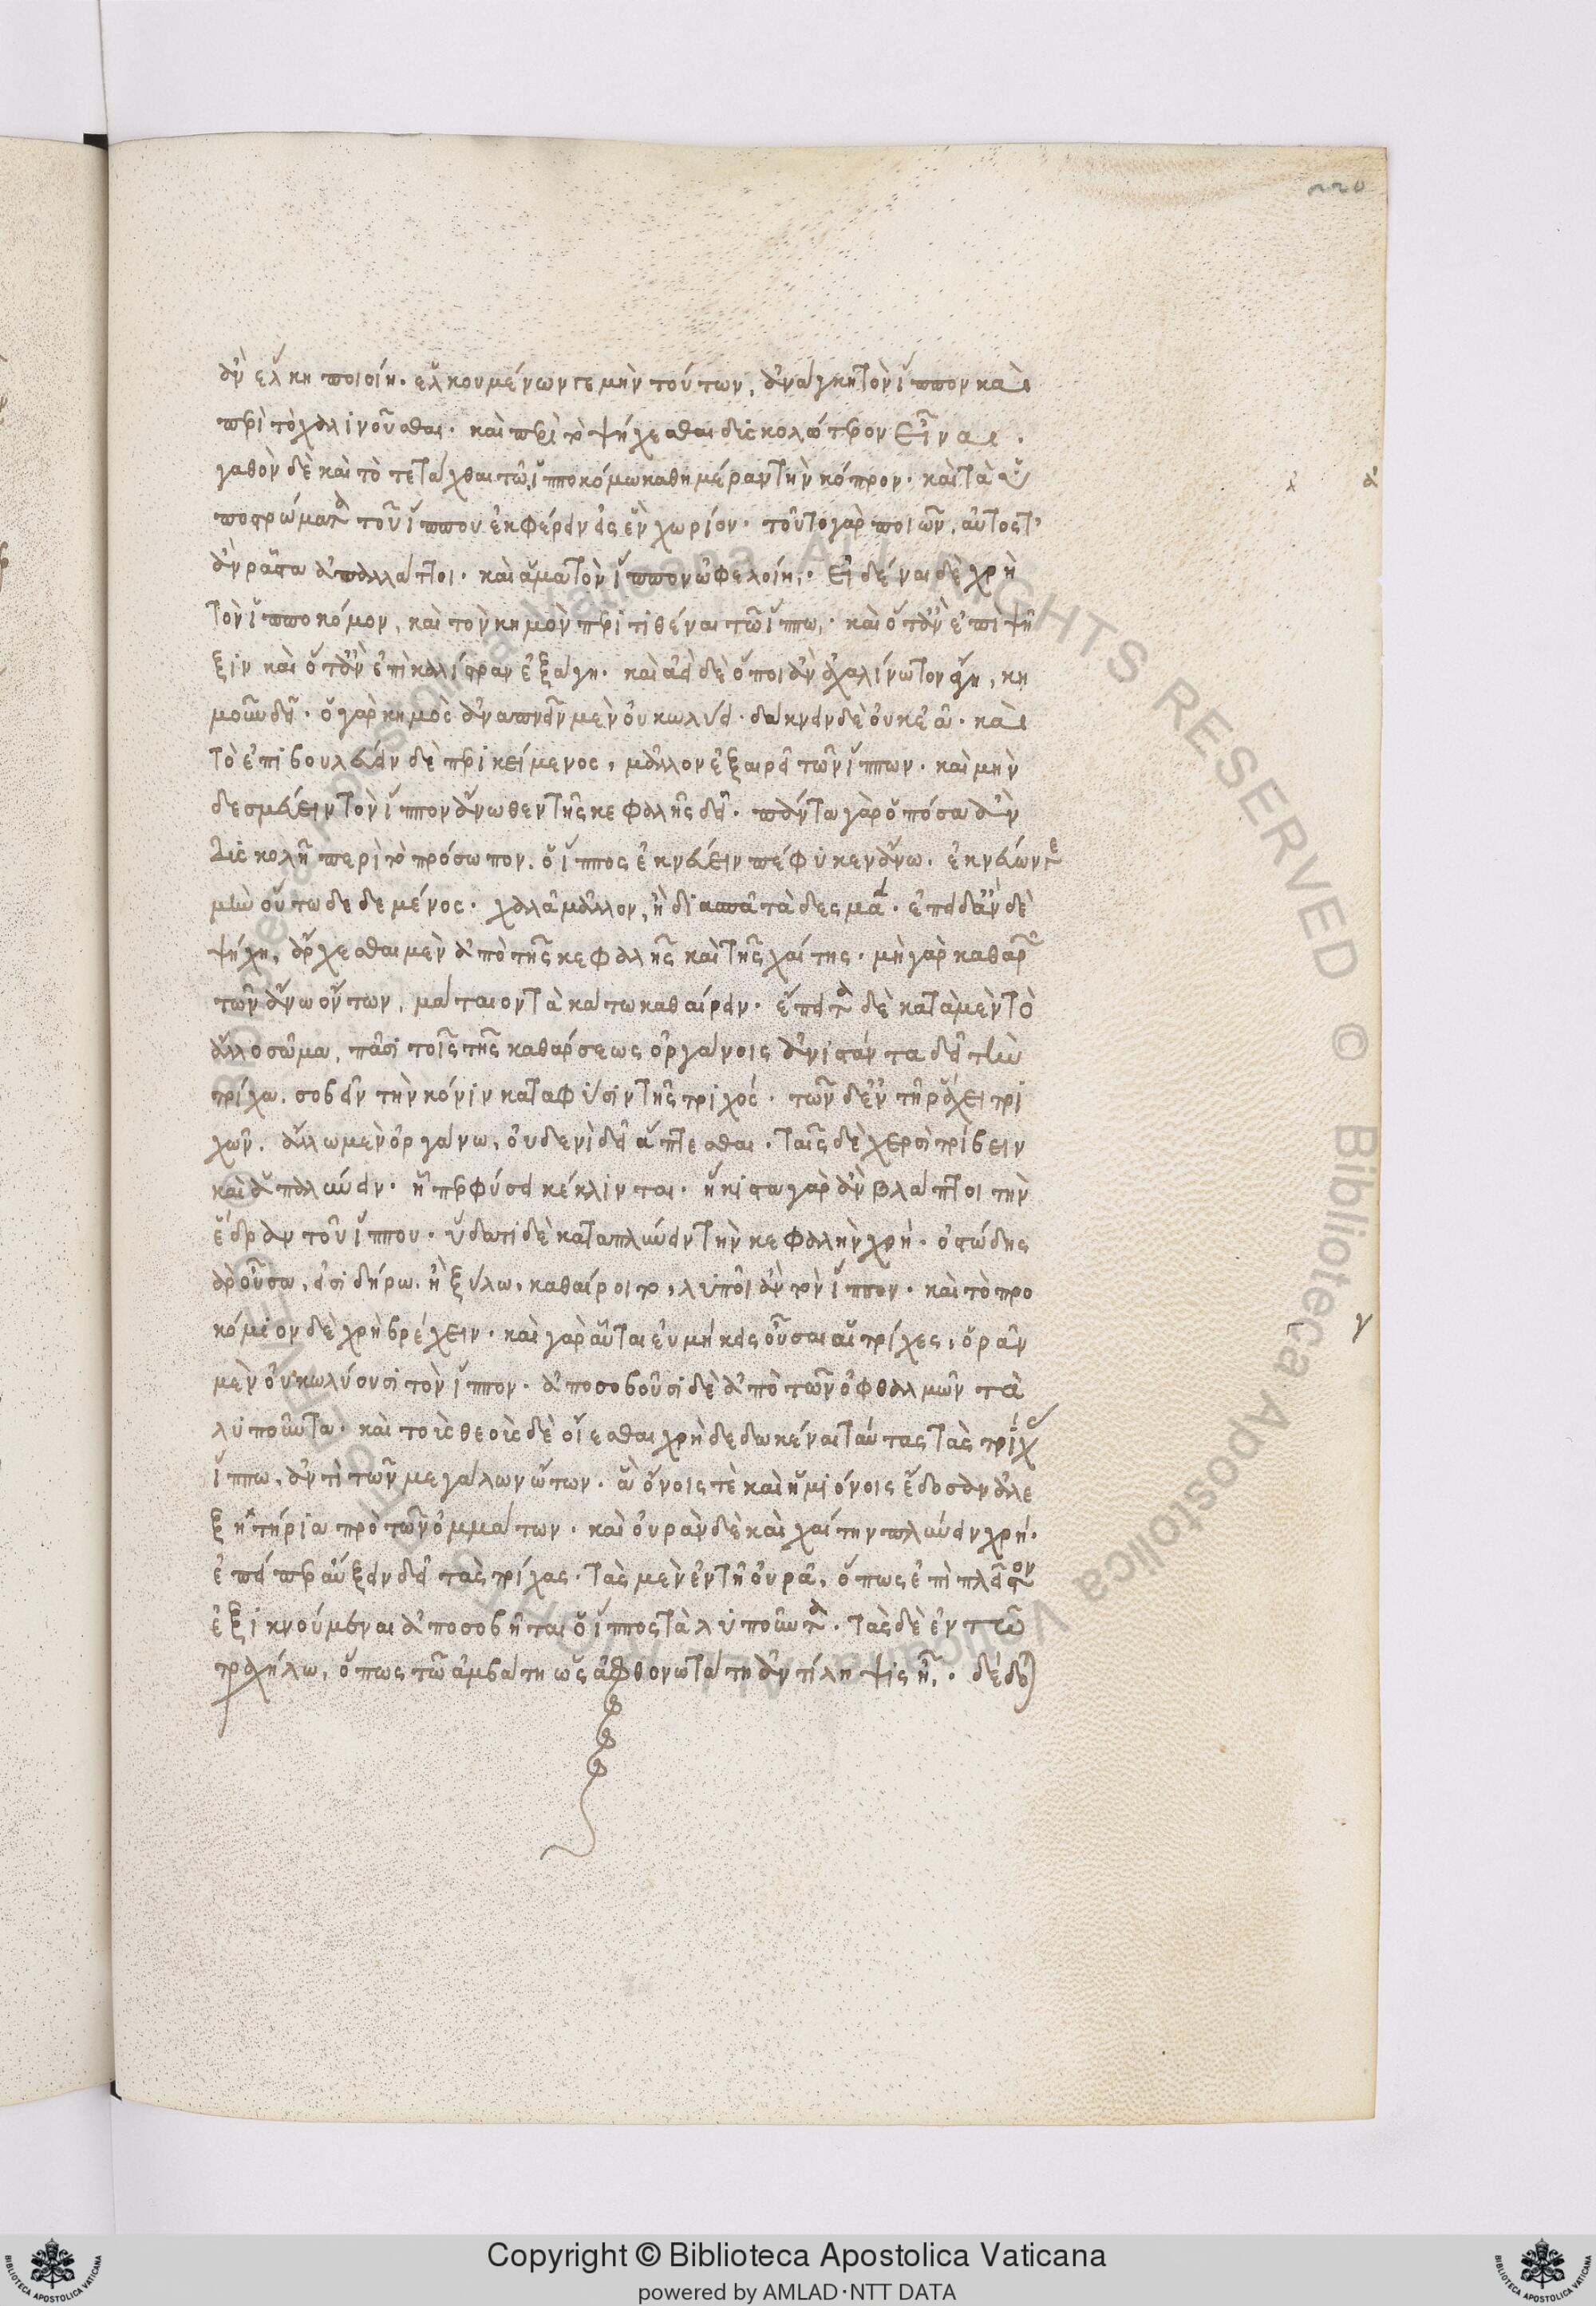 220
ἂν ἕλκη ποιοίη. ἑλκουμένων γε μὴν τούτων, ἀνάγκη τὸν ἵππον καὶ
περὶ τὸ χαλινοῦσθαι. καὶ περὶ τὸ ψήχεσθαι δισκολώτερον εἶναι.
γαθὸν δὲ καὶ τὸ τετάχθαι τῷ ἱπποκόμω καθημέραν τὴν κόπρον. καὶ τὰ ὑ
ποστρώματα τοῦ ἵππου ἐκφέρειν εἰς ἓν χωρίον. τοῦτο γὰρ ποιῶν, αὐτός τ'
ἂν ρᾶστα ἀπαλλάττοι. καὶ ἅμα τὸν ἵππον ὠφελοίη. Εἰδέναι δὲ χρὴ
τὸν ἱπποκόμον, καὶ τὸν κημὸν περιτιθέναι τῶ ἵππω. καὶ ὅταν ἐπὶ ψῆ
ξιν καὶ ὅταν ἐπὶ καλίστραν ἐξάγη. καὶ ἀεὶ δὲ ὅποι ἂν ἀχαλίνωτον ἄγη, κη
μοῦν δεῖ. ὁ γὰρ κημὸς ἀναπνεῖν μὲν οὐ κωλύει. δάκνειν δὲ οὐκ ἐᾶ. καὶ
τὸ ἐπιβουλεύειν δὲ περικείμενος, μᾶλλον ἐξαιρεῖ τῶν ἵππων. καὶ μὴν
δεσμεύειν τὸν ἵππον ἄνωθεν τῆς κεφαλῆς δεῖ. πάντα γὰρ ὁπόσα ἂν
δισκολῆ περὶ τὸ πρόσωπον. ὁ ἵππος ἐκνεύειν πέφικεν ἄνω. ἐκνεύων γε
μὴν οὕτω δεδεμένος. χαλᾶ μᾶλλον, ἢ διασπᾶ τὰ δεσμά. ἐπειδὰν δὲ
ψήχη, ἄρχεσθαι μὲν ἀπὸ τῆς κεφαλῆς καὶ τῆς χαίτης. μὴ γὰρ καθαρῶν
τῶν ἄνω ὄντων, μάταιον τὰ κάτω καθαίρειν. ἔπειτα δὲ κατὰ μὲν τὸ
ἄλλο σῶμα, πᾶσι τοῖς τῆς καθάρσεως ὀργάνοις ἀνιστάντα δεῖ τὴν
τρίχα. σοβεῖν τὴν κόνιν κατὰ φύσιν τῆς τριχός. τῶν δ' ἐν τῆ ράχει τρι
χῶν. ἄλλω μὲν ὀργάνω, οὐδενὶ δεῖ ἅπτεσθαι. ταῖς δὲ χερσὶ τρίβειν
καὶ ἁπαλύνειν. ἧπερ φύσει κέκλινται. ἥκιστα γὰρ ἂν βλάπτοι τὴν
ἕδραν τοῦ ἵππου. ὕδατι δὲ καταπλύνειν τὴν κεφαλὴν χρή. ὀστώδης
γὰρ οὖσα, εἰ σιδήρω. ἢ ξύλω, καθαίροιτο, λυποῖ ἂν τὸν ἵππον. καὶ τὸ προ
κόμιον δὲ χρὴ βρέχειν. καὶ γὰρ αὗται εὐμήκεις οὖσαι αἱ τρίχες, ὁρᾶν
μὲν οὐ κωλύουσι τὸν ἵππον. ἀποσοβοῦσι δὲ ἀπὸ τῶν ὀφθαλμῶν τὰ
λυποῦντα. καὶ τοὺς θεοὺς δὲ οἴεσθαι χρὴ δεδωκέναι ταύτας τὰς τρίχας
ἵππω, ἀντὶ τῶν μεγάλων ὤτων. ἃ ὄνοις τὲ καὶ ἡμιόνοις ἔδοσαν ἀλε
ξητήρια πρὸ τῶν ὀμμάτων. καὶ οὐρὰν δὲ καὶ χαίτην πλύνειν χρή.
ἐπείπερ αὔξειν δεῖ τὰς τρίχας. τὰς μὲν ἐν τῆ οὐρᾶ, ὅπως ἐπὶ πλεῖστον
ἐξικνούμεναι ἀποσοβῆται ὁ ἵππος τὰ λυποῦντα. τὰς δὲ ἐν τῶ
τραχήλω, ὅπως τῶ ἀμβάτη ὡς ἀφθονωτάτη ἀντίληψις ῆ. δέδο
γ
Copyright © Biblioteca Apostolica Vaticana
powered by AMLAD·NTT DATA